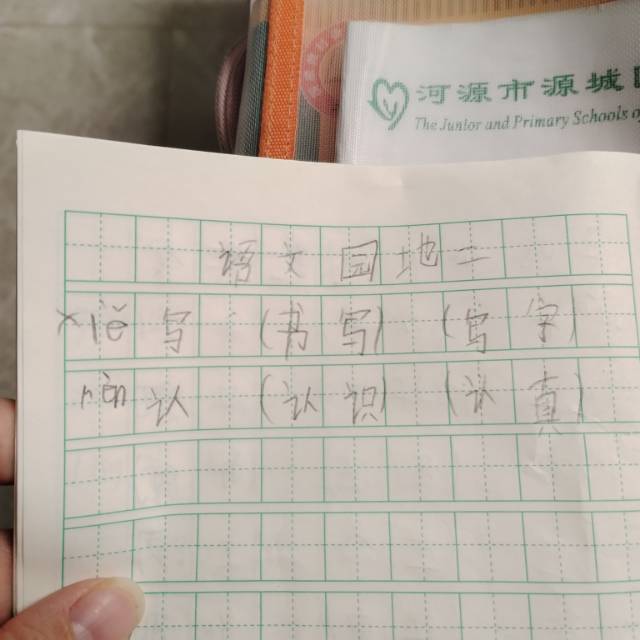 河源市源城
The Junior and Primary Schools of
语文园地二
xiě 写 (书写) (写字)
rèn 认 (认识) (认真)